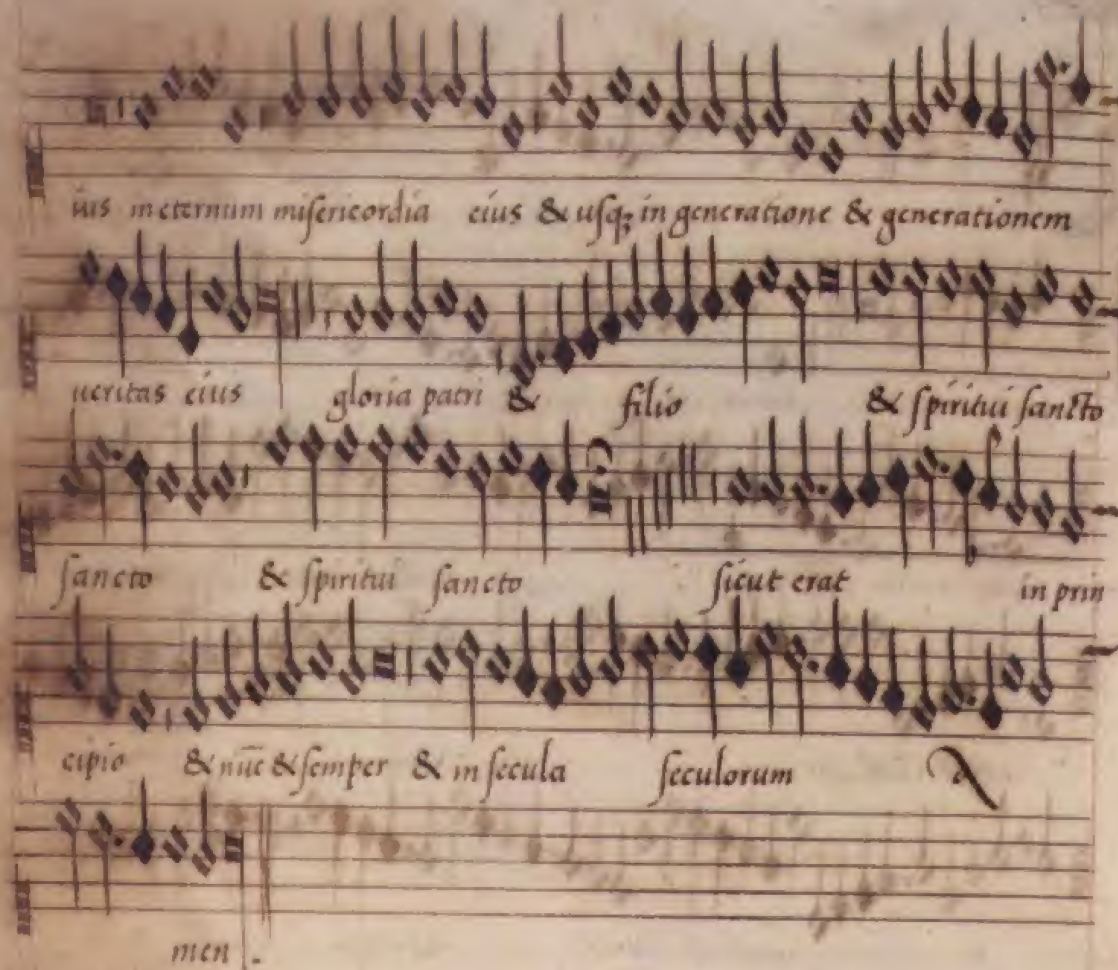 ius in eternum misericordia eius & usq; in generatione & generationem
ueritas eius gloria patri & filio & spiritui sancto
sancto & spiritui sancto sicut erat in prin
cipio & nūc & semper & in secula seculorum a
men .